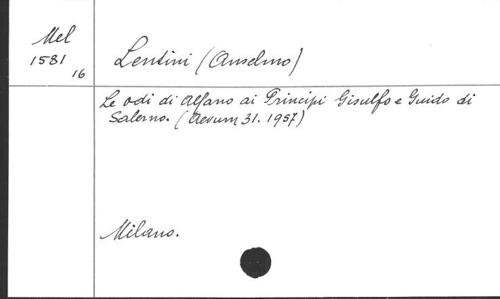 Mel
1581
16
Lentini (Anselmo)
Le odi di Alfano ai Principi Gisulfo e Guido di
Salerno. (Aevum 31. 1957)
Milano.